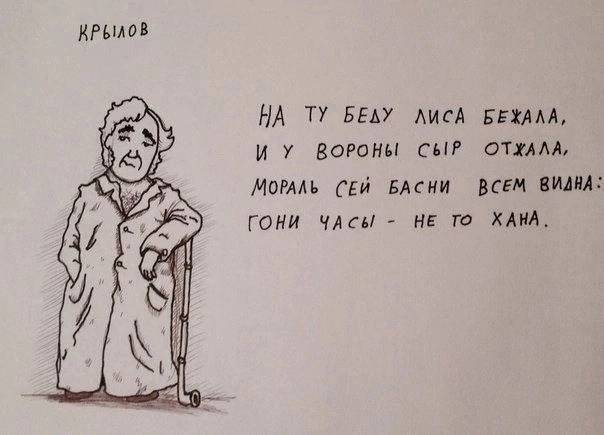 КРЫЛОВ
НА ТУ БЕДУ ЛИСА БЕЖАЛА,
И У ВОРОНЫ СЫР ОТЖАЛА,
МОРАЛЬ СЕЙ БАСНИ ВСЕМ ВИДНА:
ГОНИ ЧАСЫ - НЕ ТО ХАНА.